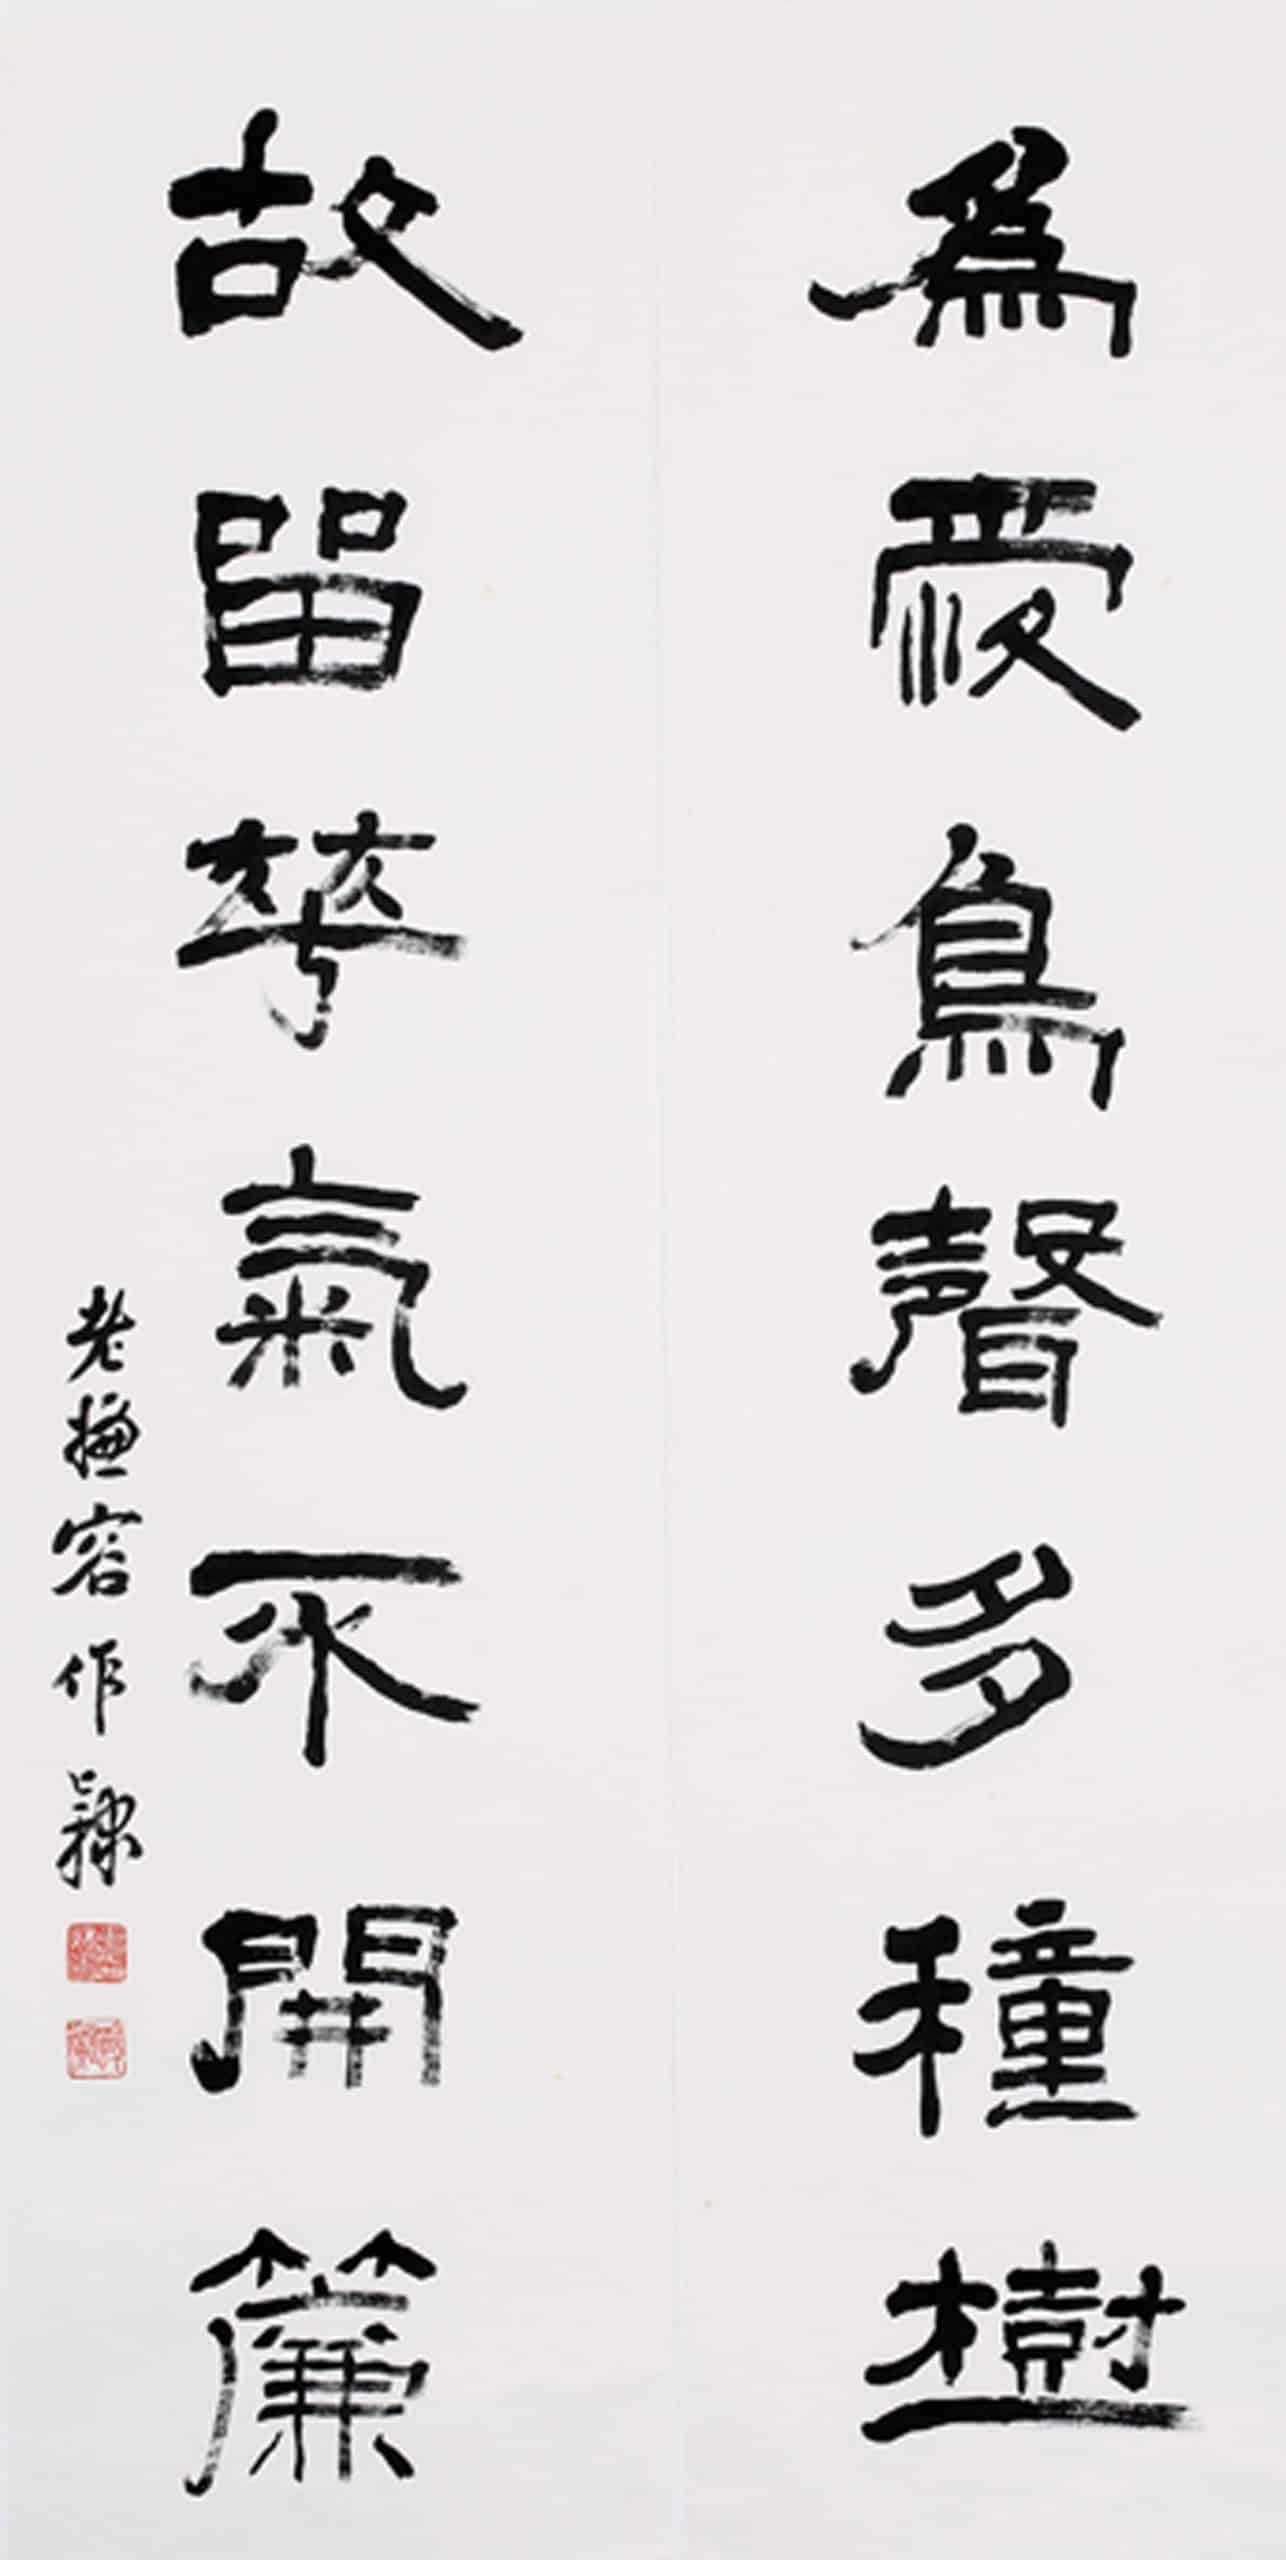 為愛鳥聲多種樹
故留華氣不開簾
老撫容作隸